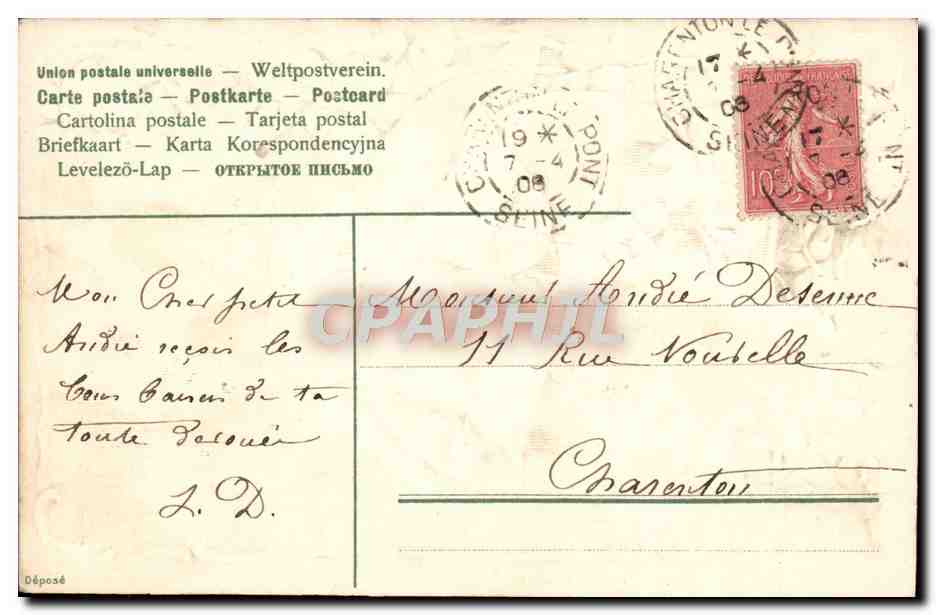 Union postale universelle — Weltpostverein.
Carte postale — Postkarte — Postcard
Cartolina postale — Tarjeta postal
Briefkaart — Karta Korespondencyjna
Levelező-Lap — ОТКРЫТОЕ ПИСЬМО
CHARENTON LE PONT
17 *
4
06
SEINE
PONT
19 *
7 -4
06
SEINE
17 *
06
SEINE
FRANÇAISE
10
Mon Cher petit
André reçois les
bons baisers de ta
toute dévouée
L. D.
Monsieur André Desenne
11 Rue Nouvelle
Charenton
CPAPHIL
Déposé